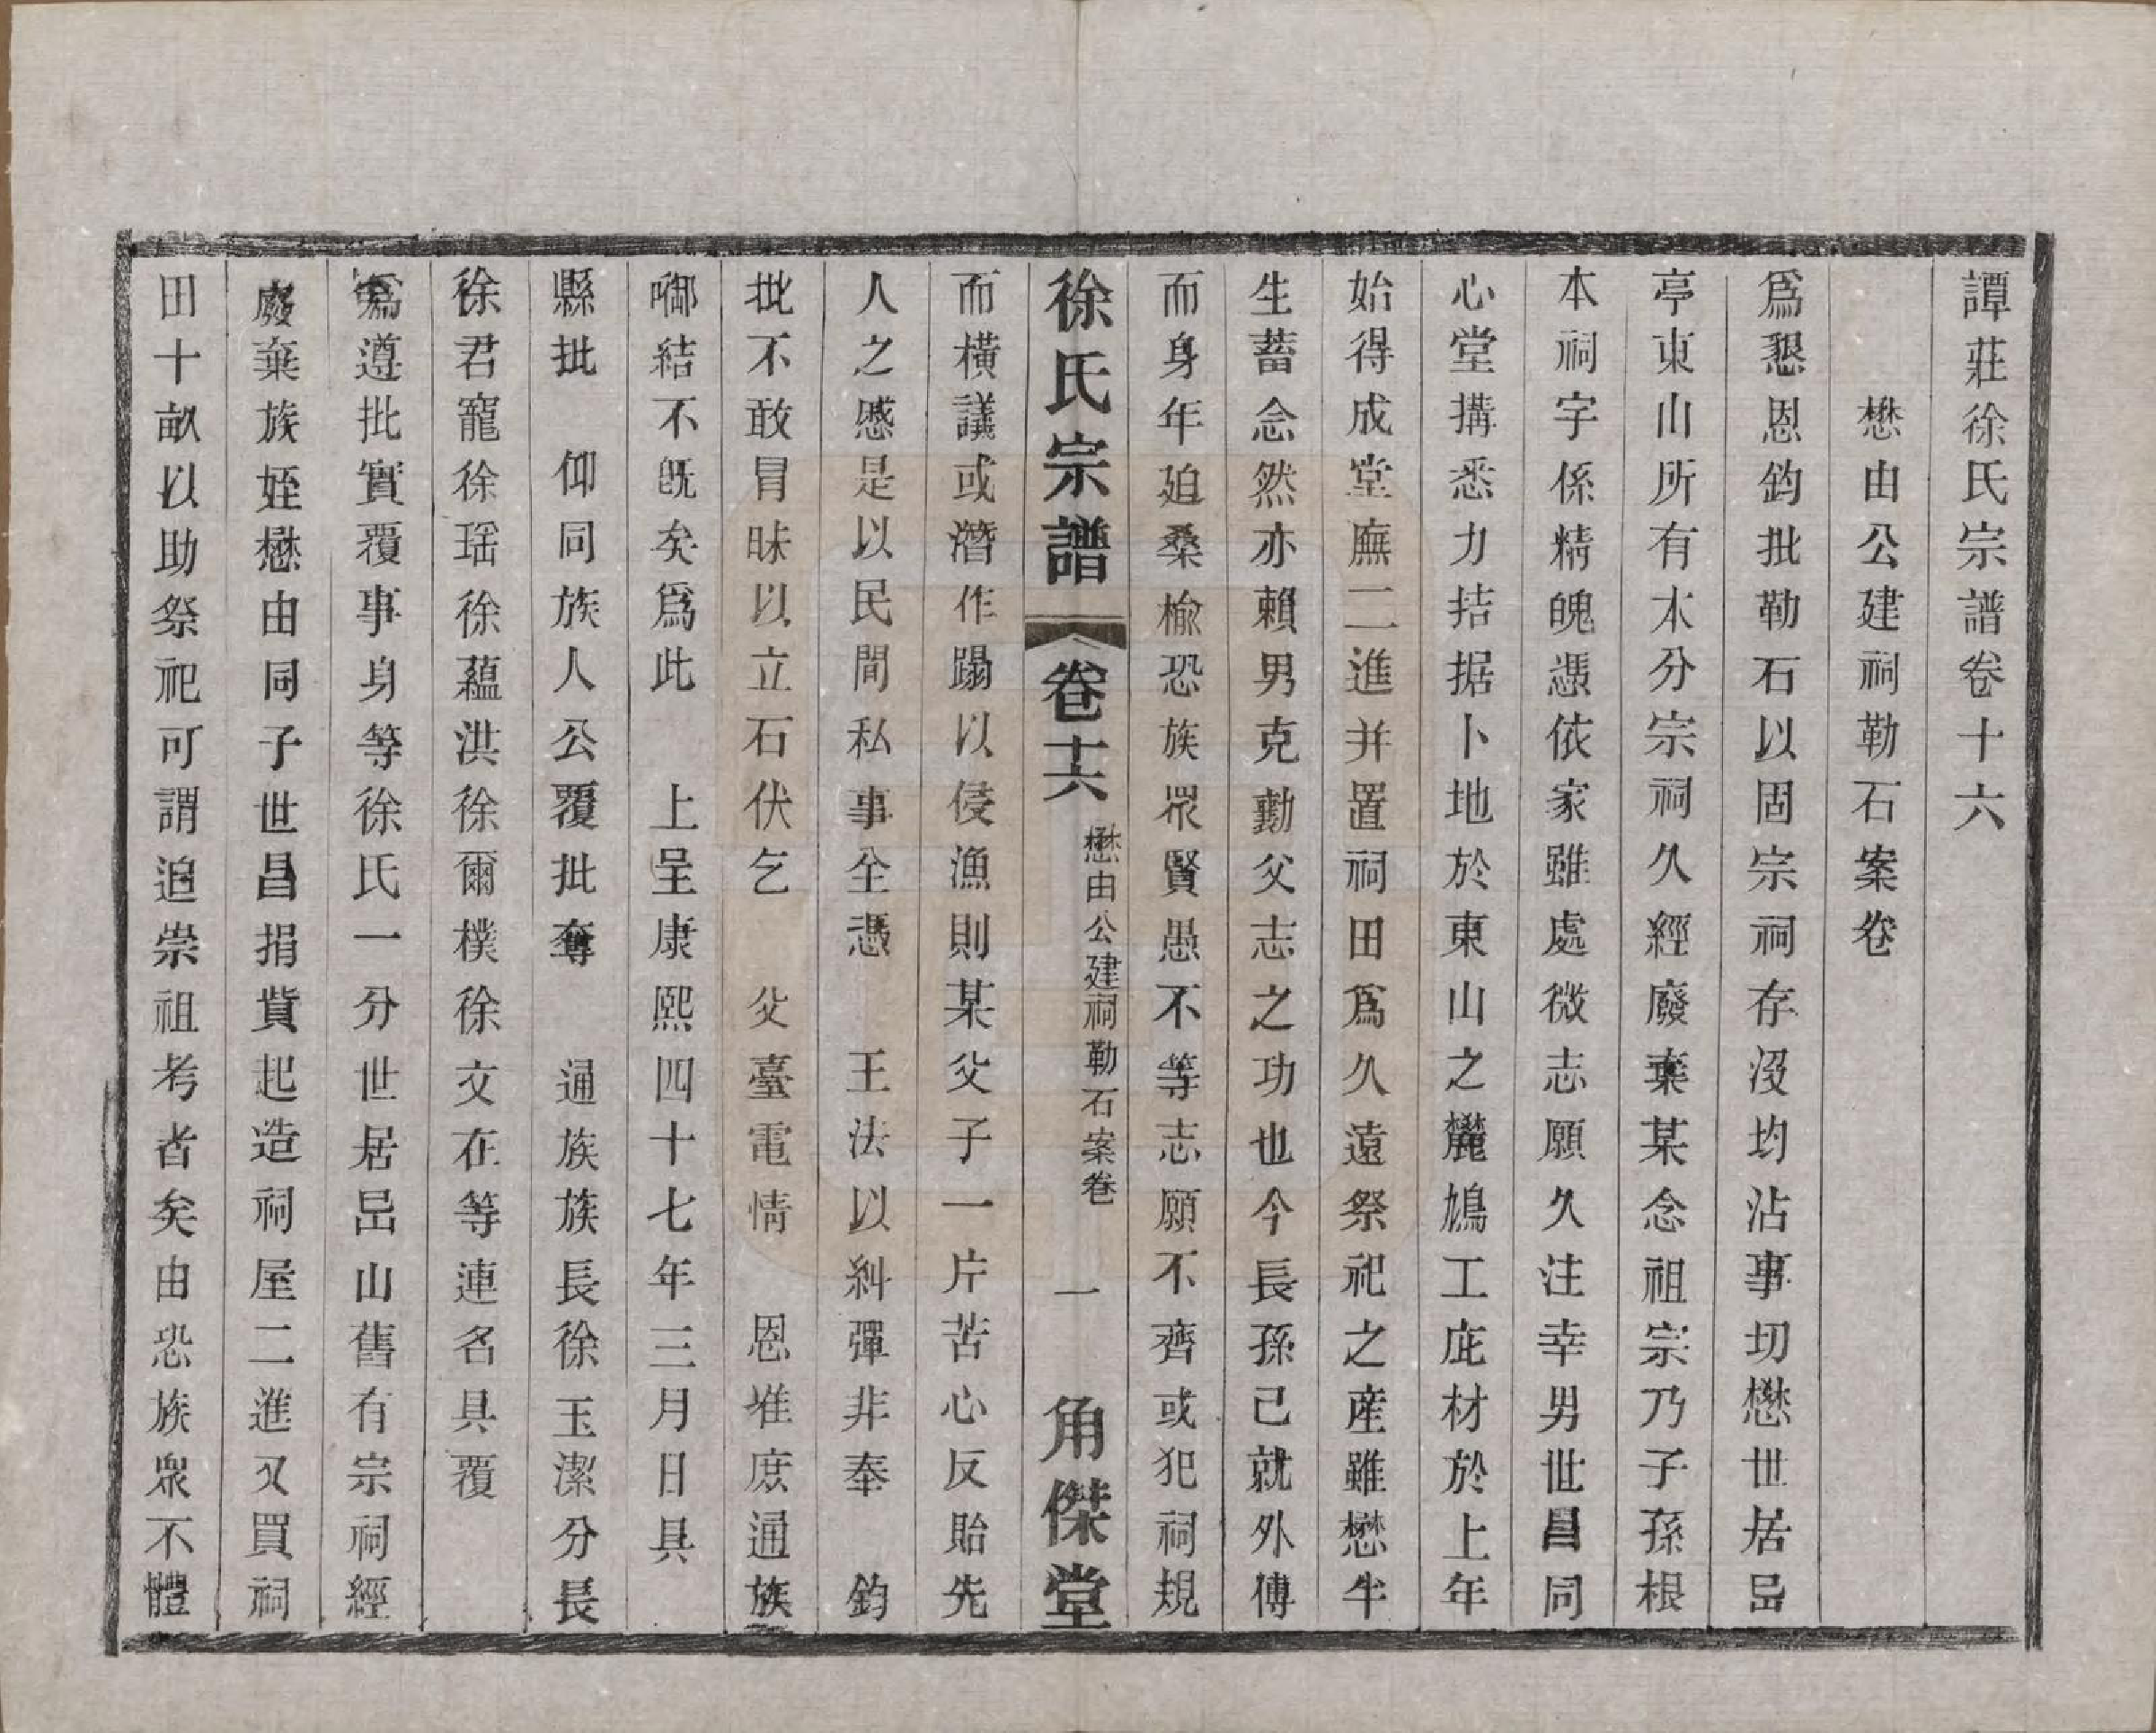 譚莊徐氏宗譜卷十六
懋由公建祠勒石案卷
爲懇恩鈞批勒石以固宗祠存沒均沾事切懋世居岊
亭東山所有本分宗祠久經廢棄某念祖宗乃子孫根
本祠宇係精魄憑依家雖處微志願久注幸男世昌同
心堂搆悉力拮据卜地於東山之麓鳩工庇材於上年
始得成堂廡二進并置祠田爲久遠祭祀之産雖懋半
生蓄念然亦賴男克勷父志之功也今長孫已就外傅
而身年廹桑榆恐族衆賢愚不等志願不齊或犯祠規
徐氏宗譜 卷十六 懋由公建祠勒石案卷 一 角傑堂
而橫議或潛作蹋以侵漁則某父子一片苦心反貽先
人之慼是以民間私事全憑 王法以糾彈非奉 鈞
批不敢冒昧以立石伏乞 父臺電情 恩准庶通族
啣結不既矣爲此 上呈康熙四十七年三月日具
縣批 仰同族人公覆批奪 通族族長徐玉潔分長
徐君寵徐瑶徐蘊洪徐爾樸徐文在等連名具覆
爲遵批實覆事身等徐氏一分世居岊山舊有宗祠經
廢棄族姪懋由同子世昌捐貲起造祠屋二進又買祠
田十畝以助祭祀可謂追崇祖考者矣由恐族衆不體